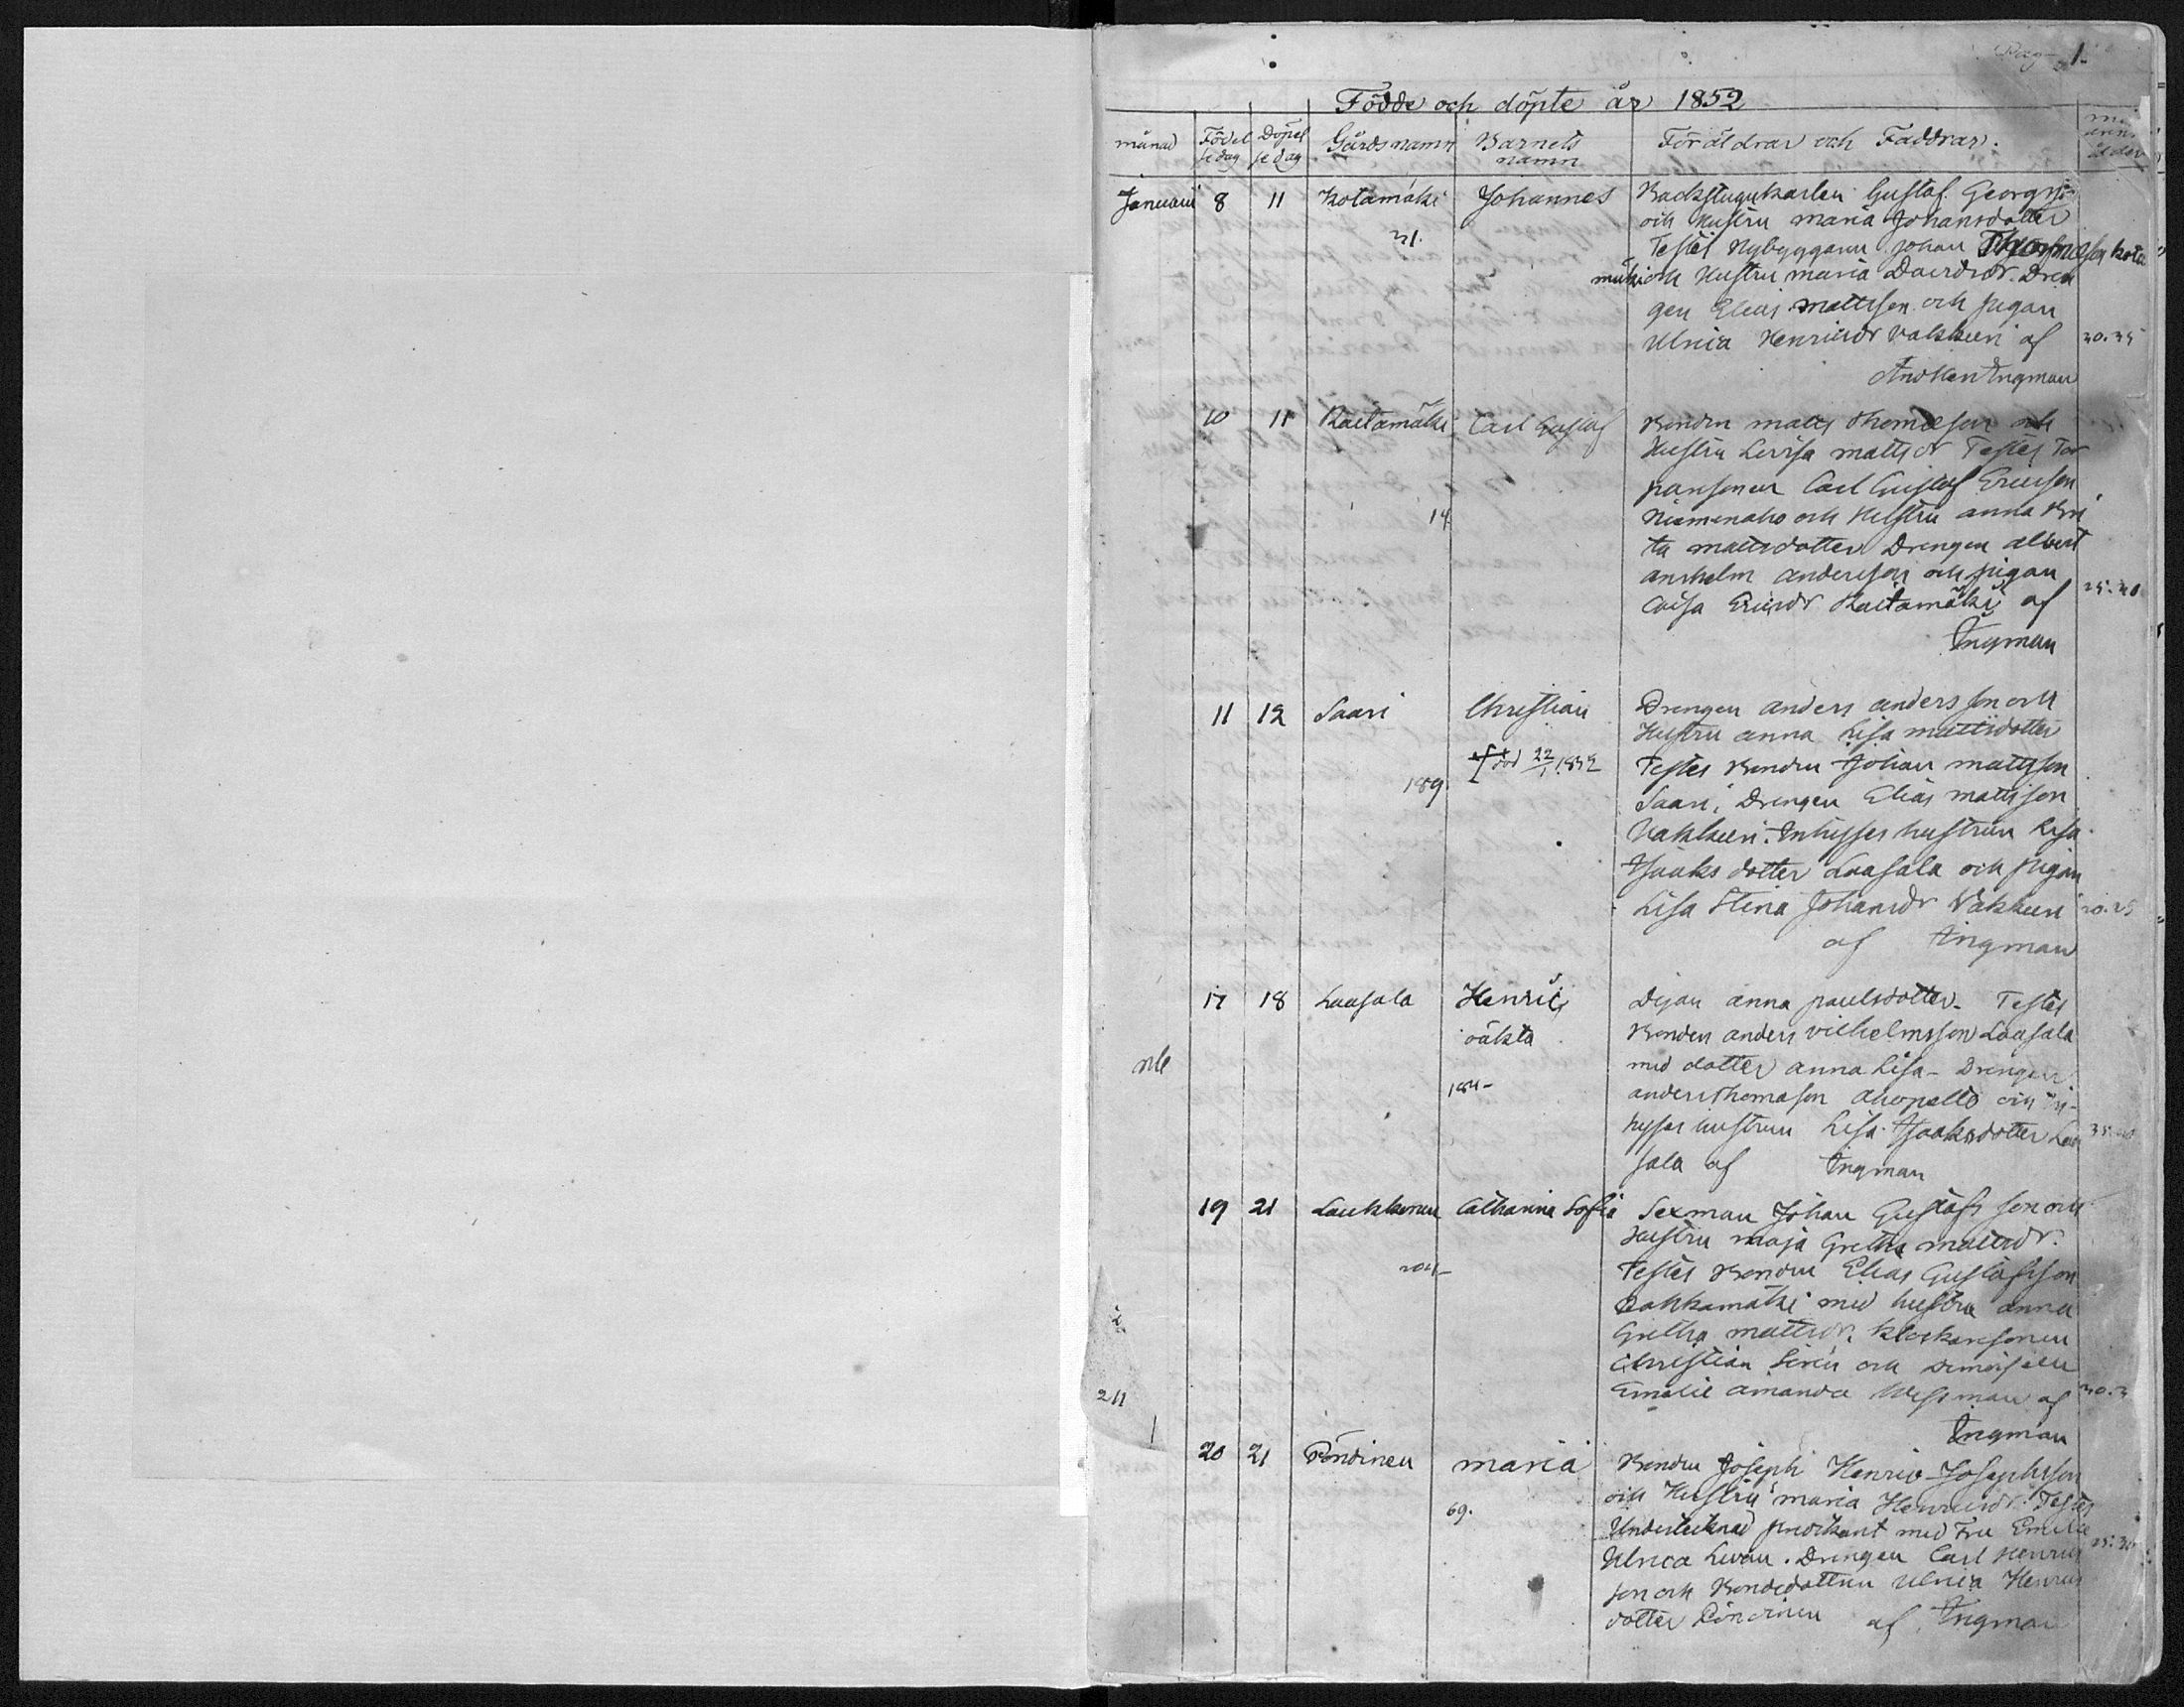 Pag. 1.
Födde och döpte år 1852
månad Födel se dag Döpel se dag Gårdsnamn Barnets namn Föräldrar och Faddrar.
Januari 8 11 Kotamäki Johannes Backstugukarlen Gustaf Georgss:
och Hustru maria Johansdotter
31. Testes Nybyggaren Johan Thomasson Kota
mäki och Hustru maria Davidsdr. Dren
gen Elias mattsson och pigan
Ulrica Henricsdr Vakkuri af 30.35
And. Hen Ingman
10 11 Raitamäki Carl Gustaf Bonden matts Thomasson och
Hustru Lovisa mattsdr Testes Tor
paresonen Carl Gustaf Ericsson
14. Niemenaho och Hustru anna Bri
ta mattsdotter Drengen albert
anshelm andersson och pigan
Caisa Ericsdr Raitamäki af 25.30
Ingman
11 12 Saari Christian Drengen anders andersson och
Hustru anna Lisa mattsdotter
död 22/1 1852 Testes Bonden Johan mattsson
189. Saari, Drengen Elias mattsson
Vakkuri. Inhyses hustrun Lisa
Isaaks dotter Laasala och pigan
Lisa Stina Johansdr Vakkuri 20.25
af Ingman
17 18 Laasala Henric Pigan anna paulsdotter. Testes
oäkta Bonden anders vilhelmsson Laasala
med dotter anna Lisa - Drengen
184- anders Thomasson ahopelto och in-
hyses hustrun Lisa Isaksdotter Laa 35.40
sala af Ingman
19 21 Laukkonen Catharina Sofia Sexman Johan Gustafs son och
Hustru maja Gretha mattsdr.
204- Testes Bonden Elias Gustafsson
Pakkamäki med hustru anna
Gretha mattsdr. Klockaresonen
Christian Sirén och Demoiselle
211 Emelie amanda Wessman af 30.3
Ingman
20 21 Pöndinen maria Bonden Joseph Henric Josephsson
och Hustru maria Henricsdr. Testes
69. Undertecknad predikant med Fru Emelie
Ulrica Levan. Drengen Carl Henrics 25.30
son och Bondedottren Ulrica Henrics
dotter Pöndinen af Ingman